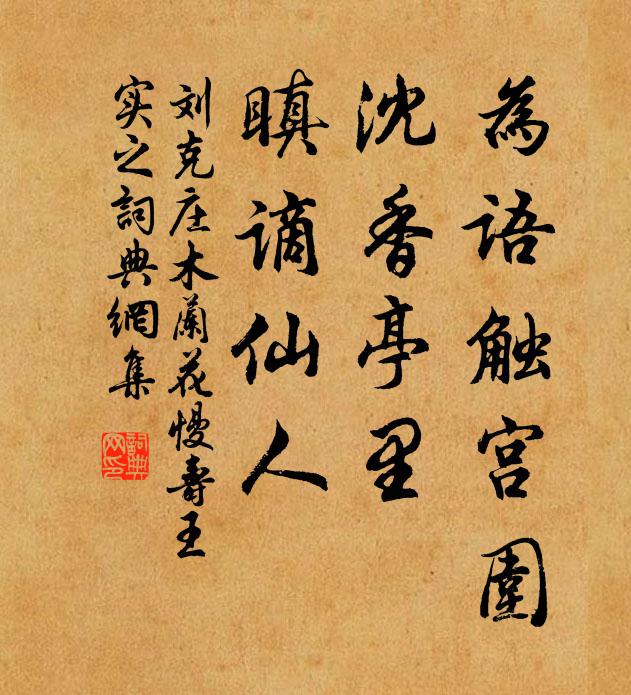 為语触宫圍
沈香亭里
瞋谪仙人
刘克庄木蘭花慢壽王
实之詞典網集
詞典
网印